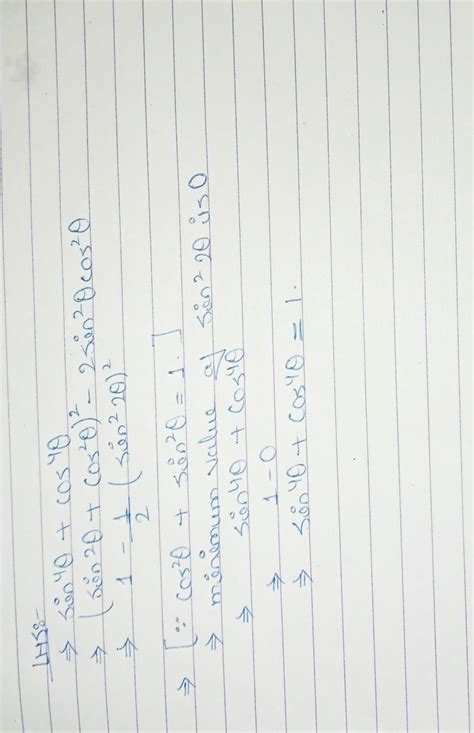 LHS:-
⇒ sin⁴θ + cos⁴θ
⇒ (sin²θ + cos²θ)² - 2sin²θcos²θ
⇒ 1 - 1/2 (sin²2θ)²
⇒ [∵ cos²θ + sin²θ = 1.]
⇒ minimum value of sin²2θ is 0
⇒ sin⁴θ + cos⁴θ
⇒ 1-0
⇒ sin⁴θ + cos⁴θ = 1.